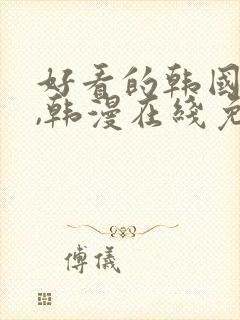 好看的韩国
,韩漫在线免
傅仪